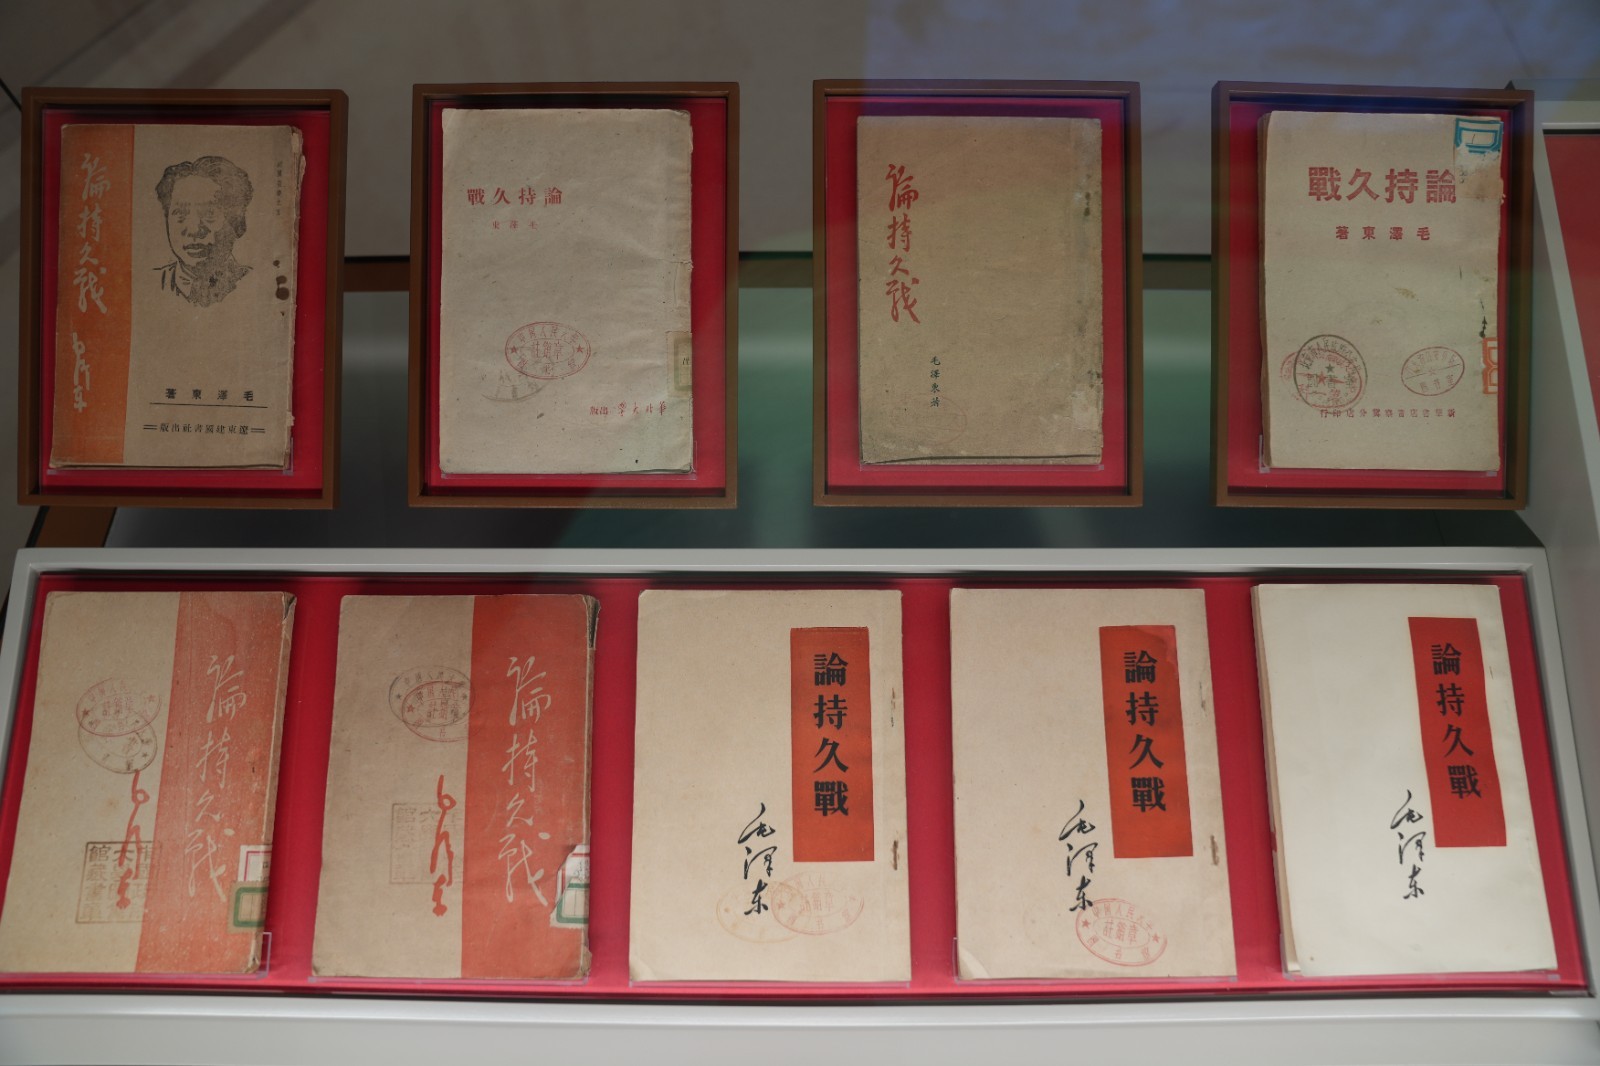 論持久戰
毛澤東
毛澤東著
遼東建國書社出版
論持久戰
毛澤東
華北大學出版
論持久戰
毛澤東著
論持久戰
毛澤東著
論持久戰
毛澤東
論持久戰
毛澤東
論持久戰
毛澤東
論持久戰
毛澤東
論持久戰
毛澤東